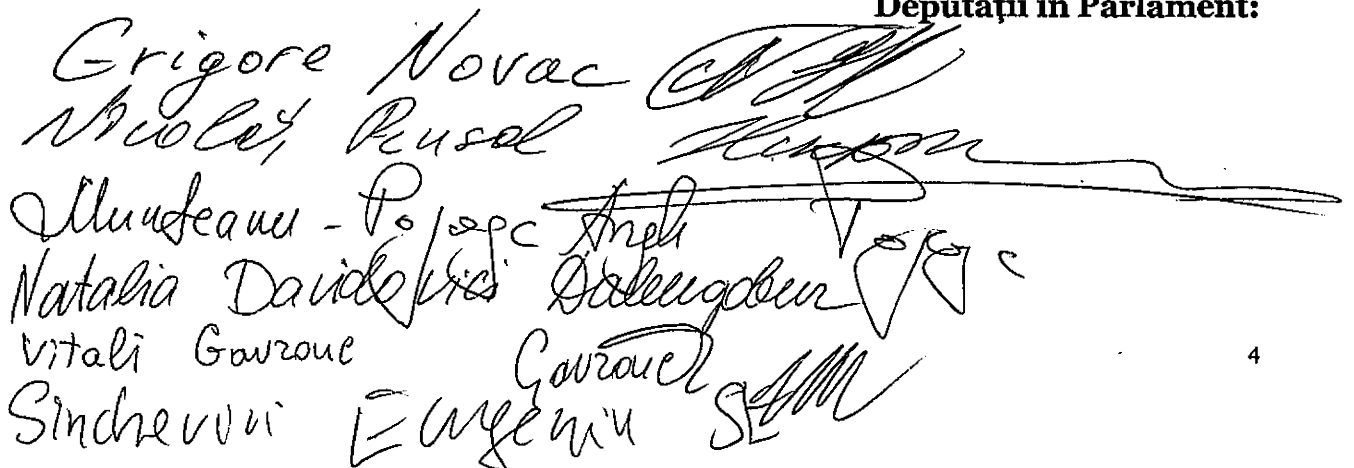 Deputații în Parlament:
Grigore Novac
Nicolai Rusol
Munteanu - Pojoga Angh
Natalia Davidovici
Vitali Gavrouc Gavrouc
Sinchevici Eugeniu
4